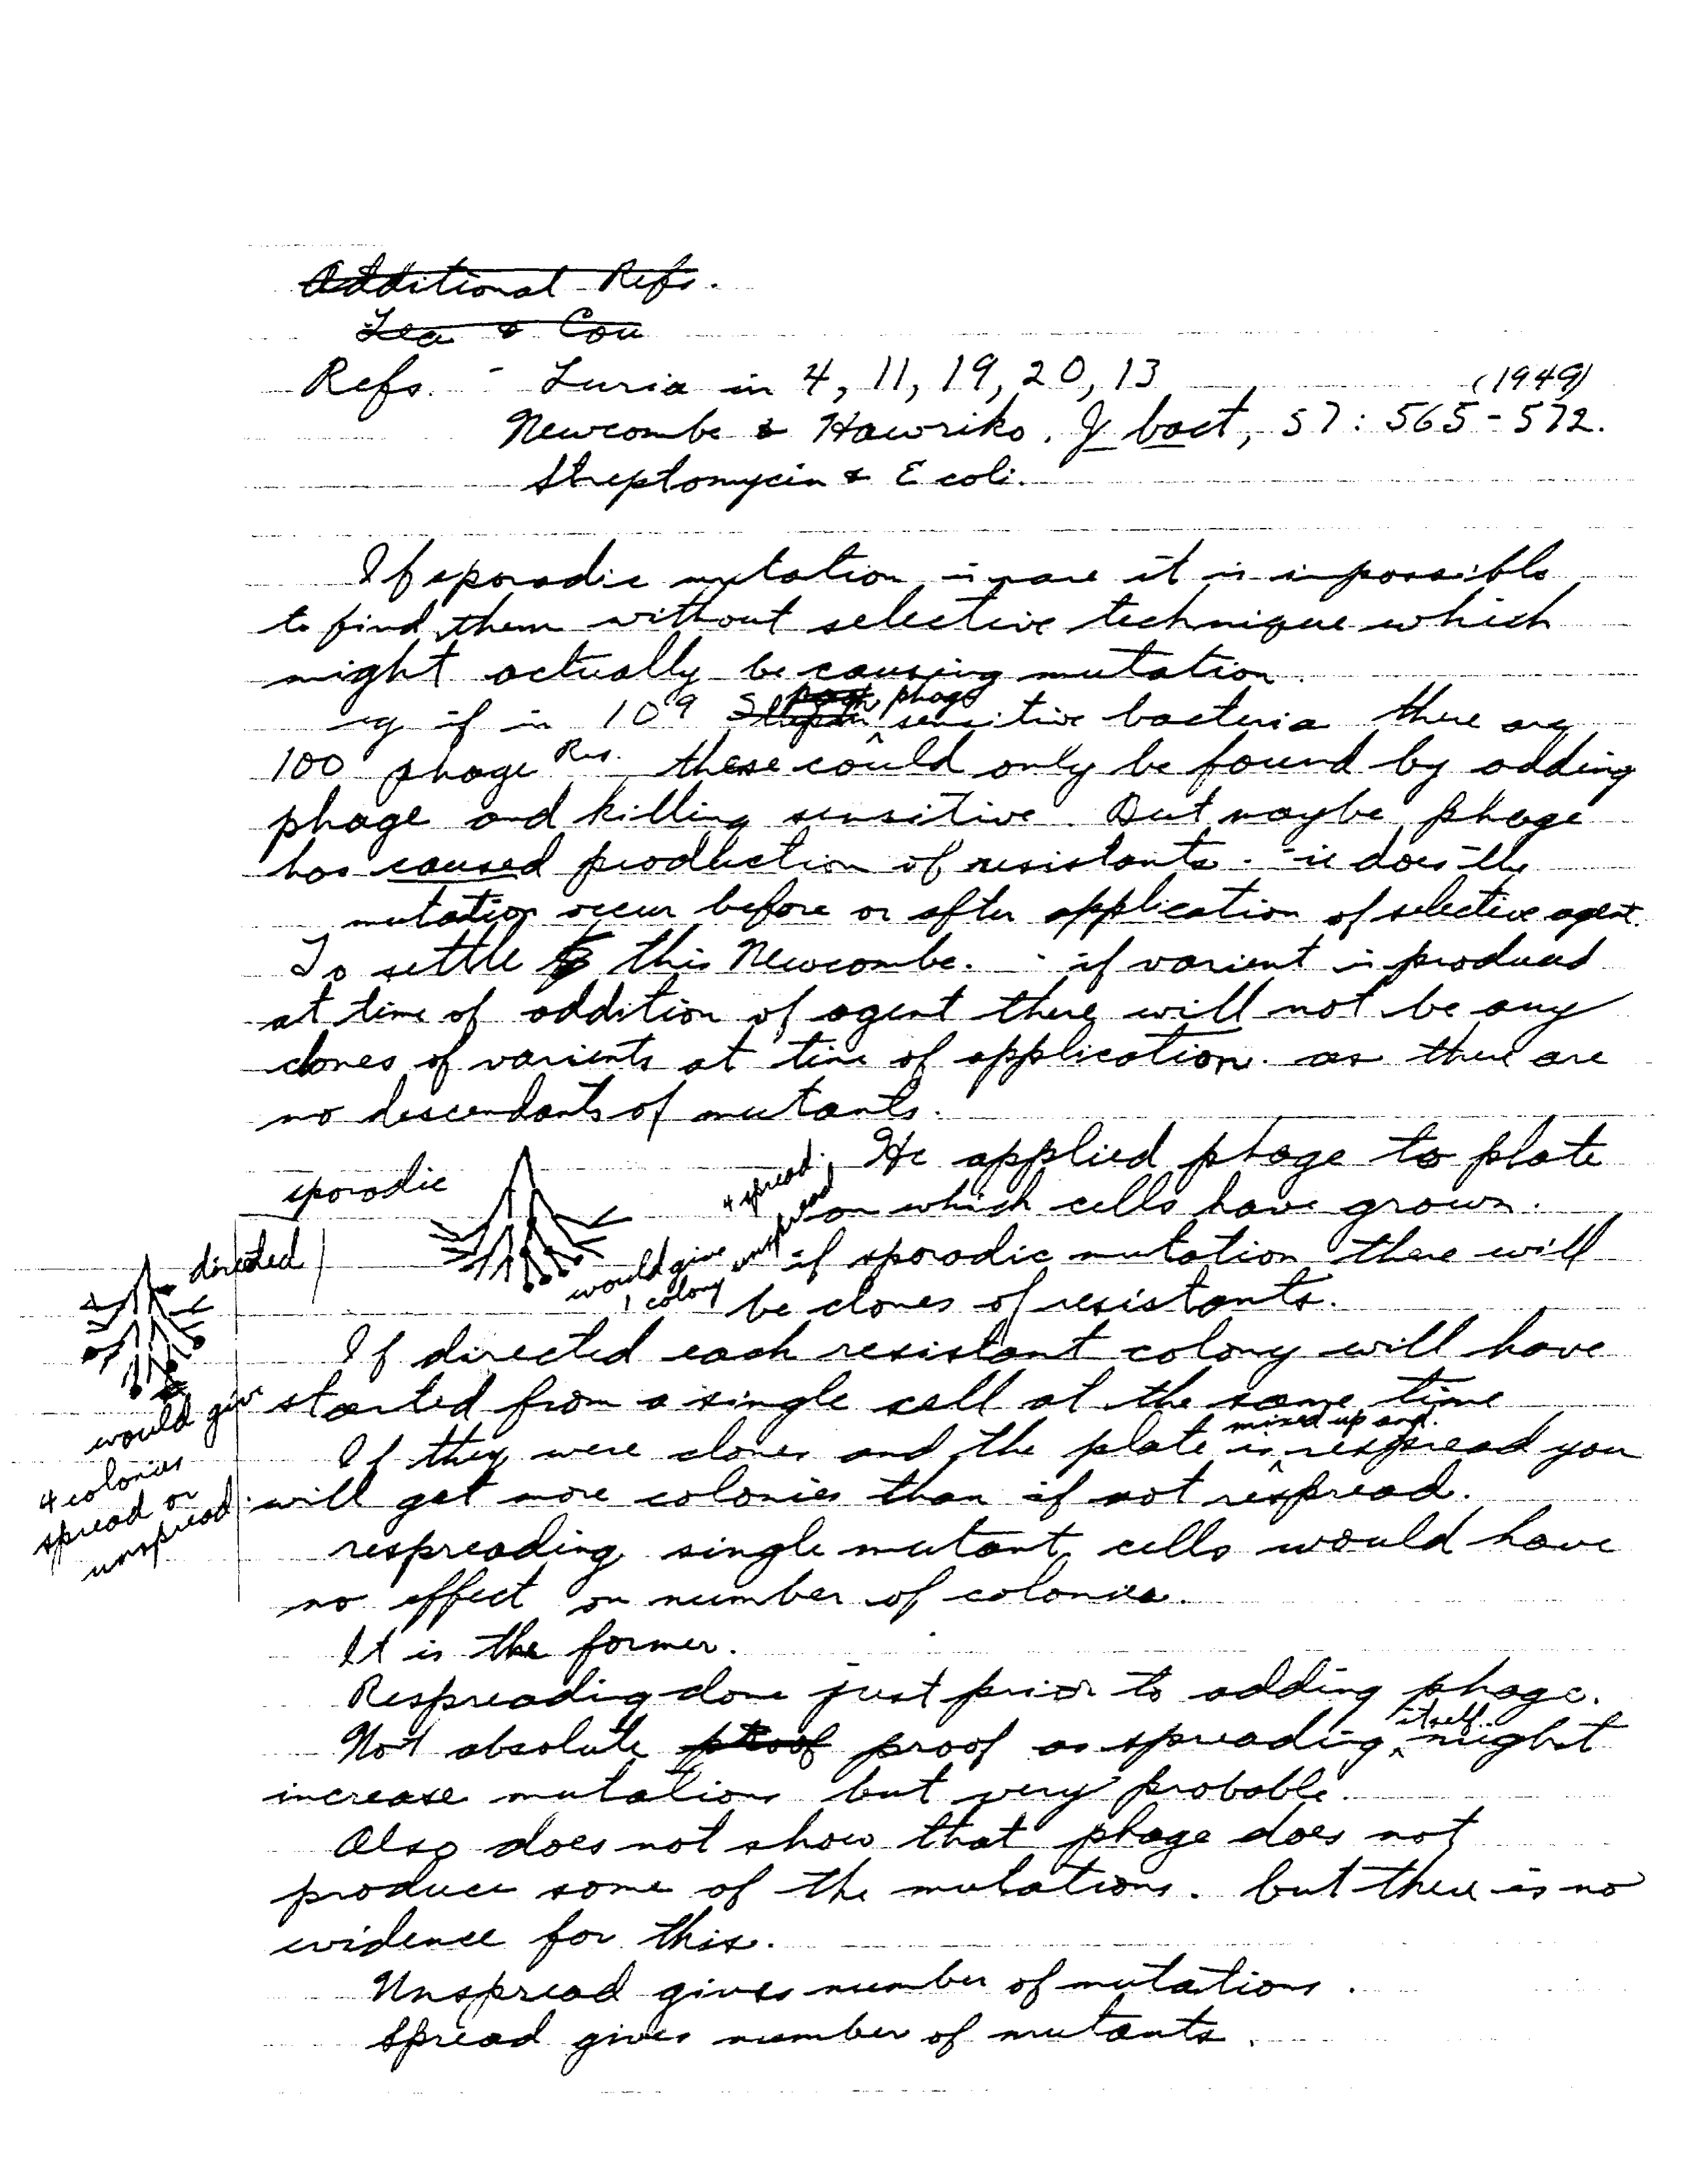 Additional Refs.
Lea & Cou
Refs. - Luria in 4, 11, 19, 20, 13 (1949)
Newcombe & Hawriko. J bact, 57: 565-572.
Streptomycin & E coli.
If sporadic mutation is rare it is impossible
to find them without selective technique which
might actually be causing mutation.
eg if in 10^9 phage sensitive bacteria there are
100 phage Res. these could only be found by adding
phage and killing sensitive. But maybe phage
has caused production of resistants. - ie does the
mutation occur before or after application of selective agent.
To settle this Newcombe. - if varient is produced
at time of addition of agent there will not be any
clones of varients at time of application. as there are
no descendants of mutants.
sporadic
4 spread.
would give unspread
1 colony
He applied phage to plate
on which cells have grown.
if sporadic mutation there will
be clones of resistants.
directed
would give
4 colonies
spread or
unspread.
If directed each resistant colony will have
started from a single cell at the same time
If they were clones and the plate is mixed up and respread you
will get more colonies than if not respread.
respreading single mutant cells would have
no effect on number of colonies.
It is the former.
Respreading done just prior to adding phage.
Not absolute proof proof as spreading itself might
increase mutations but very probable.
Also does not show that phage does not
produce some of the mutations. but there is no
evidence for this.
Unspread gives number of mutations.
Spread gives number of mutants.